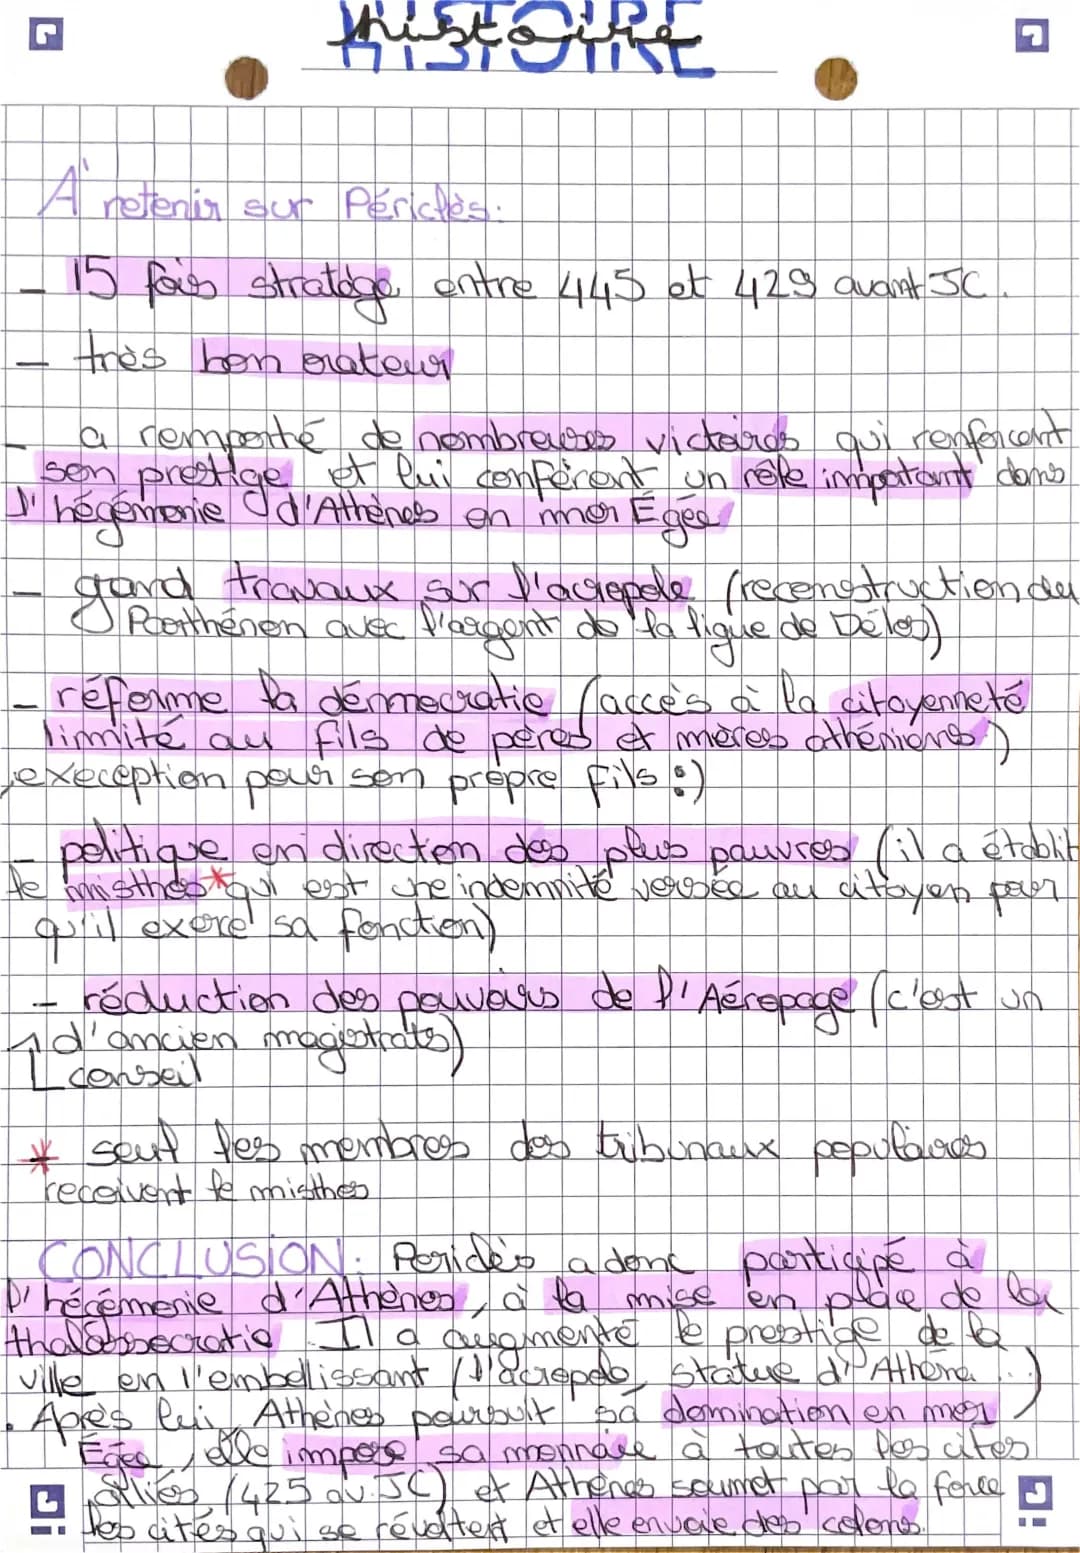 HISTOIRE
histoire
À retenir sur Périclès:
- 15 fois stratège entre 445 et 429 avant JC.
- très bon orateur
- a remporté de nombreuses victoires qui renforcent
son prestige et lui confèrent un rôle important dans
l'hégémonie d'Athènes en mer Égée
- grand travaux sur l'acropole (reconstruction du
Parthénon avec l'argent de la ligue de Délos)
- réforme la démocratie (accès à la citoyenneté
limité au fils de pères et mères athéniens)
,exeception pour son propre fils :)
- politique en direction des plus pauvres (il a établit
le misthos* qui est une indemnité versée au citoyen pour
qu'il exerce sa fonction)
- réduction des pouvoirs de l'Aéropage (c'est un
d'ancien magistrats)
conseil
* seul les membres des tribunaux populaires
reçoivent le misthos
CONCLUSION: Periclès a donc participé à
l'hégémonie d'Athènes, à la mise en place de la
thalassocratie. Il a augmenté le prestige de la
ville en l'embellissant (l'acropole, statue d'Athéna ...)
. Après lui, Athènes poursuit sa domination en mer
Égée, elle impose sa monnaie à toutes les cités
alliés (425 av. JC) et Athènes soumet par la force
les cités qui se révoltent et elle envoie des colons.